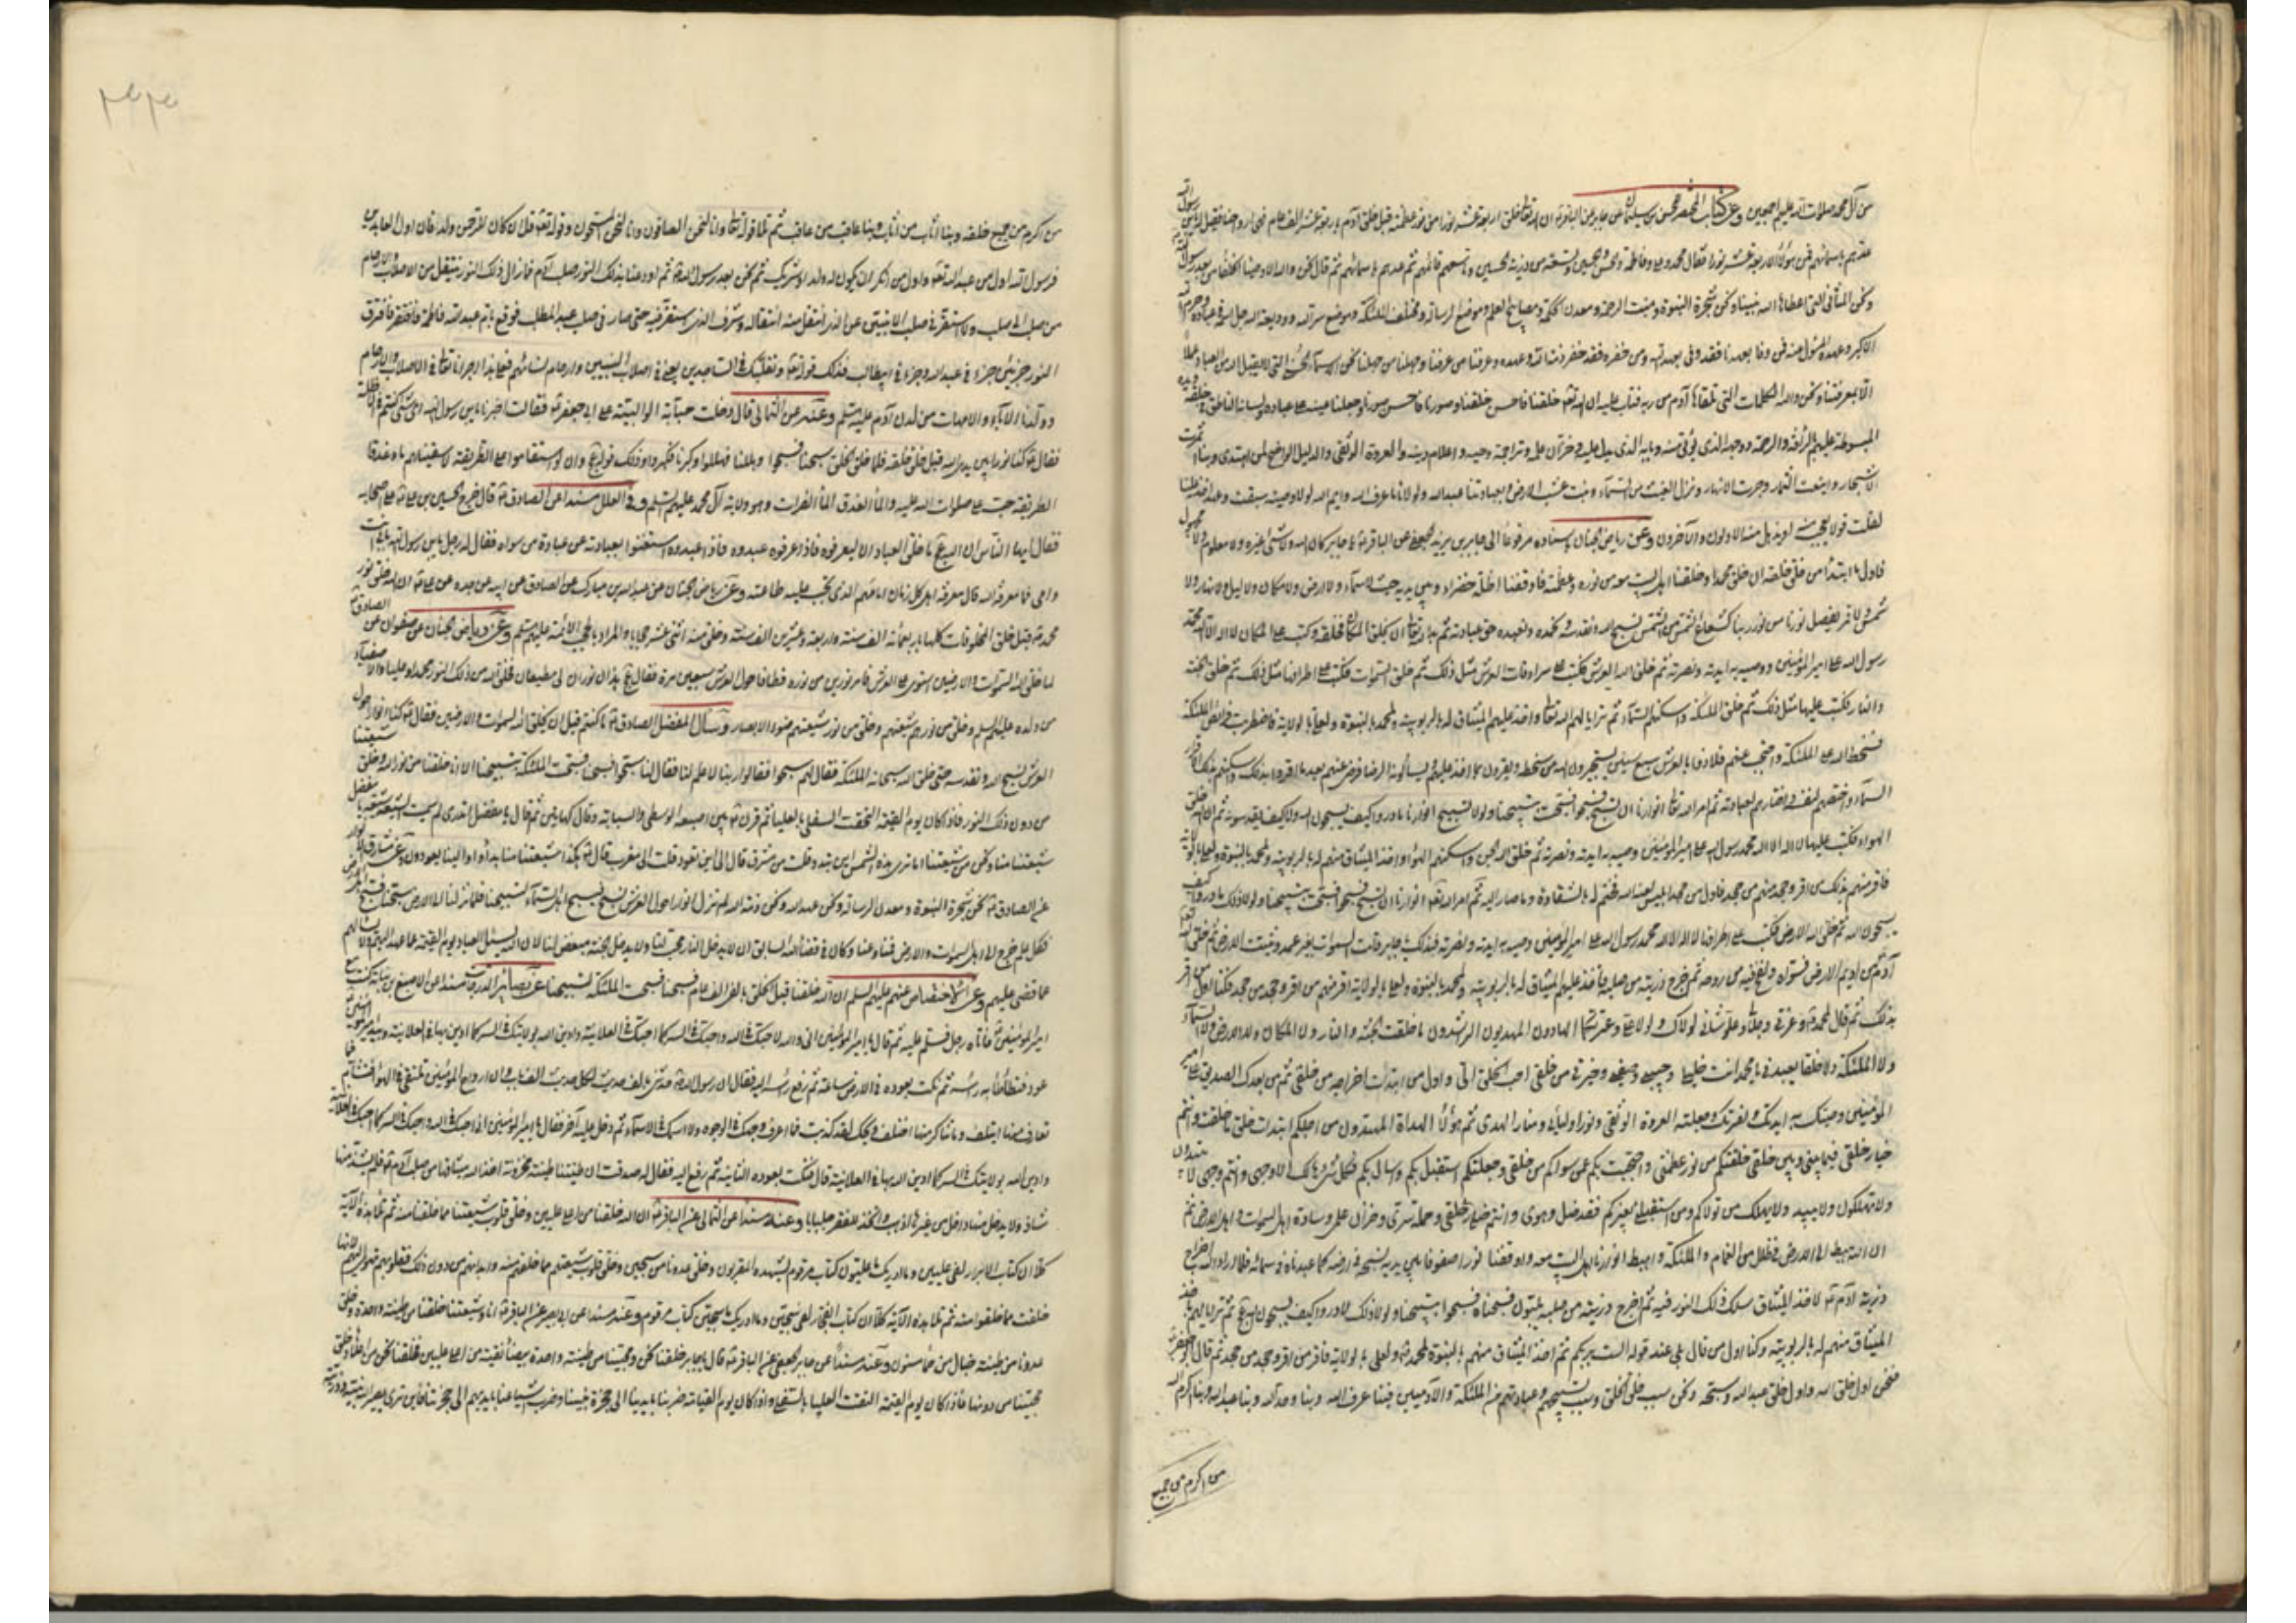 من آل محمد صلوات الله عليهم اجمعين وعن كتاب المحتضر للحسن بن سليمان عن جابر عن الباقر ان الله تعالى خلق اربعة عشر نورا من نور عظمته قبل خلق آدم باربعة عشر الف عام فهى ارواحنا فقيل له يابن رسول الله
عدهم باسمائهم فمن هؤلاء الاربعة عشر نورا فقال محمد وعلى وفاطمة والحسن والحسين وتسعة من ذرية الحسين وتاسعهم قائمهم ثم عدهم باسمائهم ثم قال نحن والله الاوصياء الخلفاء من بعد رسول الله
ونحن المثانى التى اعطاها الله نبينا ونحن شجرة النبوة ومنبت الرحمة ومعدن الحكمة ومصابيح العلم وموضع الرسالة ومختلف الملئكة وموضع سر الله ووديعة الله جل اسمه فى عباده وحرم الله
الاكبر وعهده المسئول عنه فمن وفا بعهدنا فقد وفى بعهد الله ومن خفره فقد خفر ذمة الله وعهده عرفنا من عرفنا وجهلنا من جهلنا نحن الاسماء الحسنى التى لا يقبل الله من العباد عملا
الا بمعرفتنا ونحن والله الكلمات التى تلقاها آدم من ربه فتاب عليه ان الله تعالى خلقنا فاحسن خلقنا وصورنا فاحسن صورنا وجعلنا عينه على عباده ولسانه الناطق فى خلقه ويده
المبسوطة عليهم بالرأفة والرحمة ووجهه الذى يؤتى منه وبابه الذى يدل عليه وخزان علمه وتراجمة وحيه واعلام دينه والعروة الوثقى والدليل الواضح لمن اهتدى وبنا اثمرت
الاشجار واينعت الثمار وجرت الانهار ونزل الغيث من السماء ونبت عشب الارض وبعبادتنا عبد الله ولولانا ما عرف الله وايم الله لولا وصية سبقت وعهد اخذ علينا
لقلت قولا يعجب منه او يذهل منه الاولون والآخرون وعن رياض الجنان باسناده مرفوعا الى جابر بن يزيد الجعفى عن الباقر يا جابر كان الله ولا شئ غيره ولا معلوم ولا مجهول
فاول ما ابتدأ من خلق خلقه ان خلق محمدا وخلقنا اهل البيت معه من نوره وعظمته فاوقفنا اظلة خضراء بين يديه حيث لا سماء ولا ارض ولا مكان ولا ليل ولا نهار ولا
شمس ولا قمر يفصل نورنا من نور ربنا كشعاع الشمس من الشمس نسبح الله ونقدسه ونحمده ونعبده حق عبادته ثم بدا لله تعالى ان يخلق المكان فخلقه وكتب على المكان لا اله الا الله محمد
رسول الله على امير المؤمنين ووصيه به ايدته ونصرته ثم خلق الله العرش فكتب على سرادقات العرش مثل ذلك ثم خلق السموات فكتب على اطرافها مثل ذلك ثم خلق الجنة
والنار فكتب عليها مثل ذلك ثم خلق الملئكة واسكنهم السماء ثم تراءى لهم الله تعالى واخذ عليهم الميثاق له بالربوبية ولمحمد بالنبوة ولعلى بالولاية فاضطربت فرائص الملئكة
فسخط الله على الملئكة واحتجب عنهم فلاذوا بالعرش سبع سنين يستجيرون الله من سخطه ويقرون بما اخذ عليهم ويسألونه الرضا فرضى عنهم بعد ما اقروا بذلك واسكنهم بذلك الاقرار
السماء واختصهم لنفسه واختارهم لعبادته ثم امر الله تعالى انوارنا ان تسبح فسبحنا فسبحت بتسبيحنا ولولا تسبيح انوارنا ما دروا كيف يسبحون الله ولا كيف يقدسونه ثم ان الله خلق
الهواء فكتب عليها لا اله الا الله محمد رسول الله على امير المؤمنين وصيه به ايدته ونصرته ثم خلق الله الجن واسكنهم الهواء واخذ الميثاق منهم له بالربوبية ولمحمد بالنبوة ولعلى بالولاية
فاقر منهم بذلك من اقر وجحد منهم من جحد فاول من جحد ابليس لعنه الله فختم له بالشقاوة وما صار اليه ثم امر الله تعالى انوارنا ان تسبح فسبحت فسبحوا بتسبيحنا ولولا ذلك ما دروا كيف
يسبحون الله ثم خلق الله الارض فكتب على اطرافها لا اله الا الله محمد رسول الله على امير المؤمنين وصيه به ايدته ونصرته فبذلك يا جابر قامت السموات بغير عمد وثبتت الارض ثم خلق الله
آدم من اديم الارض فسواه ونفخ فيه من روحه ثم اخرج ذريته من صلبه فاخذ عليهم الميثاق له بالربوبية ولمحمد بالنبوة ولعلى بالولاية اقر منهم من اقر وجحد من جحد فكنا اول من اقر
بذلك ثم قال لمحمد وعزتى وجلالى وعلو شانى لولاك ولولا على وعترتكما الهادون المهديون الراشدون ما خلقت الجنة والنار ولا المكان ولا الارض ولا السماء
ولا الملئكة ولا خلقا يعبدنى يا محمد انت خليلى وحبيبى وصفيى وخيرتى من خلقى احب الخلق الى واول من ابتدأت اخراجه من خلقى ثم من بعدك الصديق على امير
المؤمنين وصيك به ايدتك ونصرتك وجعلته العروة الوثقى ونور اوليائى ومنار الهدى ثم هؤلاء الهداة المهتدون من اجلكم ابتدات خلق ما خلقت وانتم
خيار خلقى فيما بينى وبين خلقى خلقتكم من نور عظمتى واحتجبت بكم عمن سواكم من خلقى وجعلتكم استقبل بكم واسال بكم فكل شئ هالك الا وجهى وانتم وجهى لا تبيدون
ولا تهلكون ولا يبيد ولا يهلك من تولاكم ومن استقبلنى بغيركم فقد ضل وهوى وانتم خيار خلقى وحملة سرى وخزان علمى وسادة اهل السموات واهل الارض ثم
ان الله هبط الى الارض فى ظلل من الغمام والملئكة واهبط انوارنا اهل البيت معه واوقفنا نورا صفوفا بين يديه نسبحه فى ارضه كما سبحناه فى سمائه فلما اراد الله اخراج
ذرية آدم لاخذ الميثاق سلك ذلك النور فيه ثم اخرج ذريته من صلبه يلبون فسبحناه فسبحوا بتسبيحنا ولولا ذلك لما دروا كيف يسبحون الله ثم تراءى لهم فاخذ
الميثاق منهم له بالربوبية وكنا اول من قال بلى عند قوله الست بربكم ثم اخذ الميثاق منهم بالنبوة لمحمد ولعلى بالولاية فاقر من اقر وجحد من جحد ثم قال ابو جعفر
فنحن اول خلق الله واول خلق عبد الله وسبحه ونحن سبب خلق الخلق وسبب تسبيحهم وعبادتهم من الملئكة والآدميين فبنا عرف الله وبنا وحد الله وبنا عبد الله وبنا اكرم الله
من اكرم من جميع
٣٤٣
من اكرم من جميع خلقه وبنا اثاب من اثاب وبنا عاقب من عاقب ثم تلا قوله تعالى وانا لنحن الصافون وانا لنحن المسبحون وقوله تعالى قل ان كان للرحمن ولد فانا اول العابدين
فرسول الله اول من عبد الله تعالى واول من انكر ان يكون له ولد او شريك ثم نحن بعد رسول الله ثم اودعنا بذلك النور صلب آدم فما زال ذلك النور ينتقل من الاصلاب والارحام
من صلب الى صلب ولا استقر فى صلب الا تبين عن الذى انتقل منه انتقاله وشرف الذى استقر فيه حتى صار فى صلب عبد المطلب فوقع بام عبد الله فاطمة فافترق
النور جزئين جزء فى عبد الله وجزء فى ابيطالب فذلك قوله تعالى وتقلبك فى الساجدين يعنى فى اصلاب النبيين وارحام نسائهم فعلى هذا اجرانا تعالى فى الاصلاب والارحام
وولدنا الآباء والامهات من لدن آدم عليه السلم وعنه عن الثمالى قال دخلت حبابة الوالبية على ابى جعفر فقالت اخبرنى يابن رسول الله اى شئ كنتم فى الاظلة
فقال كنا نورا بين يدى الله قبل خلق خلقه فلما خلق الخلق سبحنا فسبحوا وهللنا فهللوا وكبرنا فكبروا وذلك قوله تعالى وان لو استقاموا على الطريقة لاسقيناهم ماء غدقا
الطريقة حب على صلوات الله عليه والماء الغدق الماء الفرات وهو ولاية آل محمد عليهم السلم وفى العلل مسندا عن الصادق قال خرج الحسين بن على على اصحابه
فقال ايها الناس ان الله ما خلق العباد الا ليعرفوه فاذا عرفوه عبدوه فاذا عبدوه استغنوا بعبادته عن عبادة من سواه فقال له رجل يابن رسول الله بابى انت
وامى فما معرفة الله قال معرفة اهل كل زمان امامهم الذى يجب عليه طاعته وعن رياض الجنان عن عبد الله بن مبارك عن الصادق عن ابيه عن جده عن على ان الله خلق نور
محمد قبل خلق المخلوقات كلها باربعمائة الف سنة واربعة وعشرين الف سنة وخلق منه اثنى عشر حجابا والمراد بالحجب الائمة عليهم السلم وعن رياض الجنان عن صفوان عن الصادق
لما خلق الله السموات والارضين استوى على العرش فامر نورين من نوره فطافا حول العرش سبعين مرة فقال هذان نوران لى مطيعان فخلق الله من ذلك النور محمدا وعليا والاصفياء
من ولده عليهم السلم وخلق من نورهم شيعتهم وخلق من نور شيعتهم ضوء الابصار وسأل المفضل الصادق ما كنتم قبل ان يخلق الله السموات والارضين فقال كنا انوارا حول
العرش نسبح الله ونقدسه حتى خلق الله سبحانه الملئكة فقال لهم سبحوا فقالوا ربنا لا علم لنا فقال لنا سبحوا فسبحنا فسبحت الملئكة بتسبيحنا الا انا خلقنا من نور الله وخلق شيعتنا
من دون ذلك النور فاذا كان يوم القيمة التحقت السفلى بالعليا ثم قرن بين اصبعيه الوسطى والسبابة وقال كهاتين ثم قال يا مفضل اتدرى لم سميت الشيعة شيعة يا مفضل
شيعتنا منا ونحن من شيعتنا اما ترى هذه الشمس اين تبدو قلت من مشرق قال الى اين تعود قلت الى مغرب قال هكذا شيعتنا منا بدأوا والينا يعودون وعن مشارق الانوار
عن الصادق نحن شجرة النبوة ومعدن الرسالة ونحن عهد الله ونحن ذمة الله لم نزل انوارا حول العرش نسبح فيسبح اهل السماء لتسبيحنا فلما نزلنا الى الارض سبحنا فسبح اهل الارض
فكل علم خرج الى اهل السموات والارض فمنا وعنا وكان فى قضاء الله السابق ان لا يدخل النار محب لنا ولا يدخل الجنة مبغض لنا لان الله يسئل العباد يوم القيمة عما عهد اليهم ولا يسالهم
عما قضى عليهم وعن الاختصاص عنهم عليهم السلم ان الله خلقنا قبل الخلق بالفى الف عام فسبحنا فسبحت الملئكة لتسبيحنا عن بصائر الدرجات مسندا عن الاصبغ بن نباتة كنت مع
امير المؤمنين فاتاه رجل فسلم عليه ثم قال يا امير المؤمنين انى والله لاحبك فى الله واحبك فى السر كما احبك فى العلانية وادين الله بولايتك فى السر كما ادين بها فى العلانية وبيد امير المؤمنين
عود فطأطأ به راسه ثم نكت بعوده فى الارض ساعة ثم رفع راسه اليه فقال ان رسول الله حدثنى بالف حديث لكل حديث الف باب وان ارواح المؤمنين تلتقى فى الهواء فتشام فما
تعارف منها ائتلف وما تناكر منها اختلف ويحك لقد كذبت فما اعرف وجهك فى الوجوه ولا اسمك فى الاسماء ثم دخل عليه آخر فقال يا امير المؤمنين انى احبك فى الله واحبك فى السر كما احبك فى العلانية
وادين الله بولايتك فى السر كما ادين الله بها فى العلانية قال فنكت بعوده الثانية ثم رفع اليه فقال له صدقت ان طينتنا طينة مخزونة اخذ الله ميثاقها من صلب آدم فلم يشذ منها
شاذ ولا يدخل منها داخل من غيرها اذهب واتخذ للفقر جلبابا وعنه مسندا عن الثمالى عن الباقر ان الله خلقنا من اعلى عليين وخلق قلوب شيعتنا مما خلقنا منه ثم تلا هذه الآية
كلا ان كتاب الابرار لفى عليين وما ادريك ما عليون كتاب مرقوم يشهده المقربون وخلق عدونا من سجين وخلق قلوب شيعتهم مما خلقهم منه وابدانهم من دون ذلك فقلوبهم تهوى اليهم لانها
خلقت مما خلقوا منه ثم تلا هذه الآية كلا ان كتاب الفجار لفى سجين وما ادريك ما سجين كتاب مرقوم وعنه مسندا عن ابى بصير عن الباقر انا وشيعتنا خلقنا من طينة واحدة وخلق
عدونا من طينة خبال من حمأ مسنون وعنه مسندا عن جابر الجعفى عن الباقر قال يا جابر خلقنا نحن ومحبينا من طينة واحدة بيضاء نقية من اعلى عليين فخلقنا نحن من اعلاها وخلق
محبينا من دونها فاذا كان يوم القيمة التفت العليا بالسفلى واذا كان يوم القيامة ضربنا بايدينا الى حجزة نبينا وضرب اشياعنا بايديهم الى حجزتنا فاين ترى يصير الله نبيه وذريته